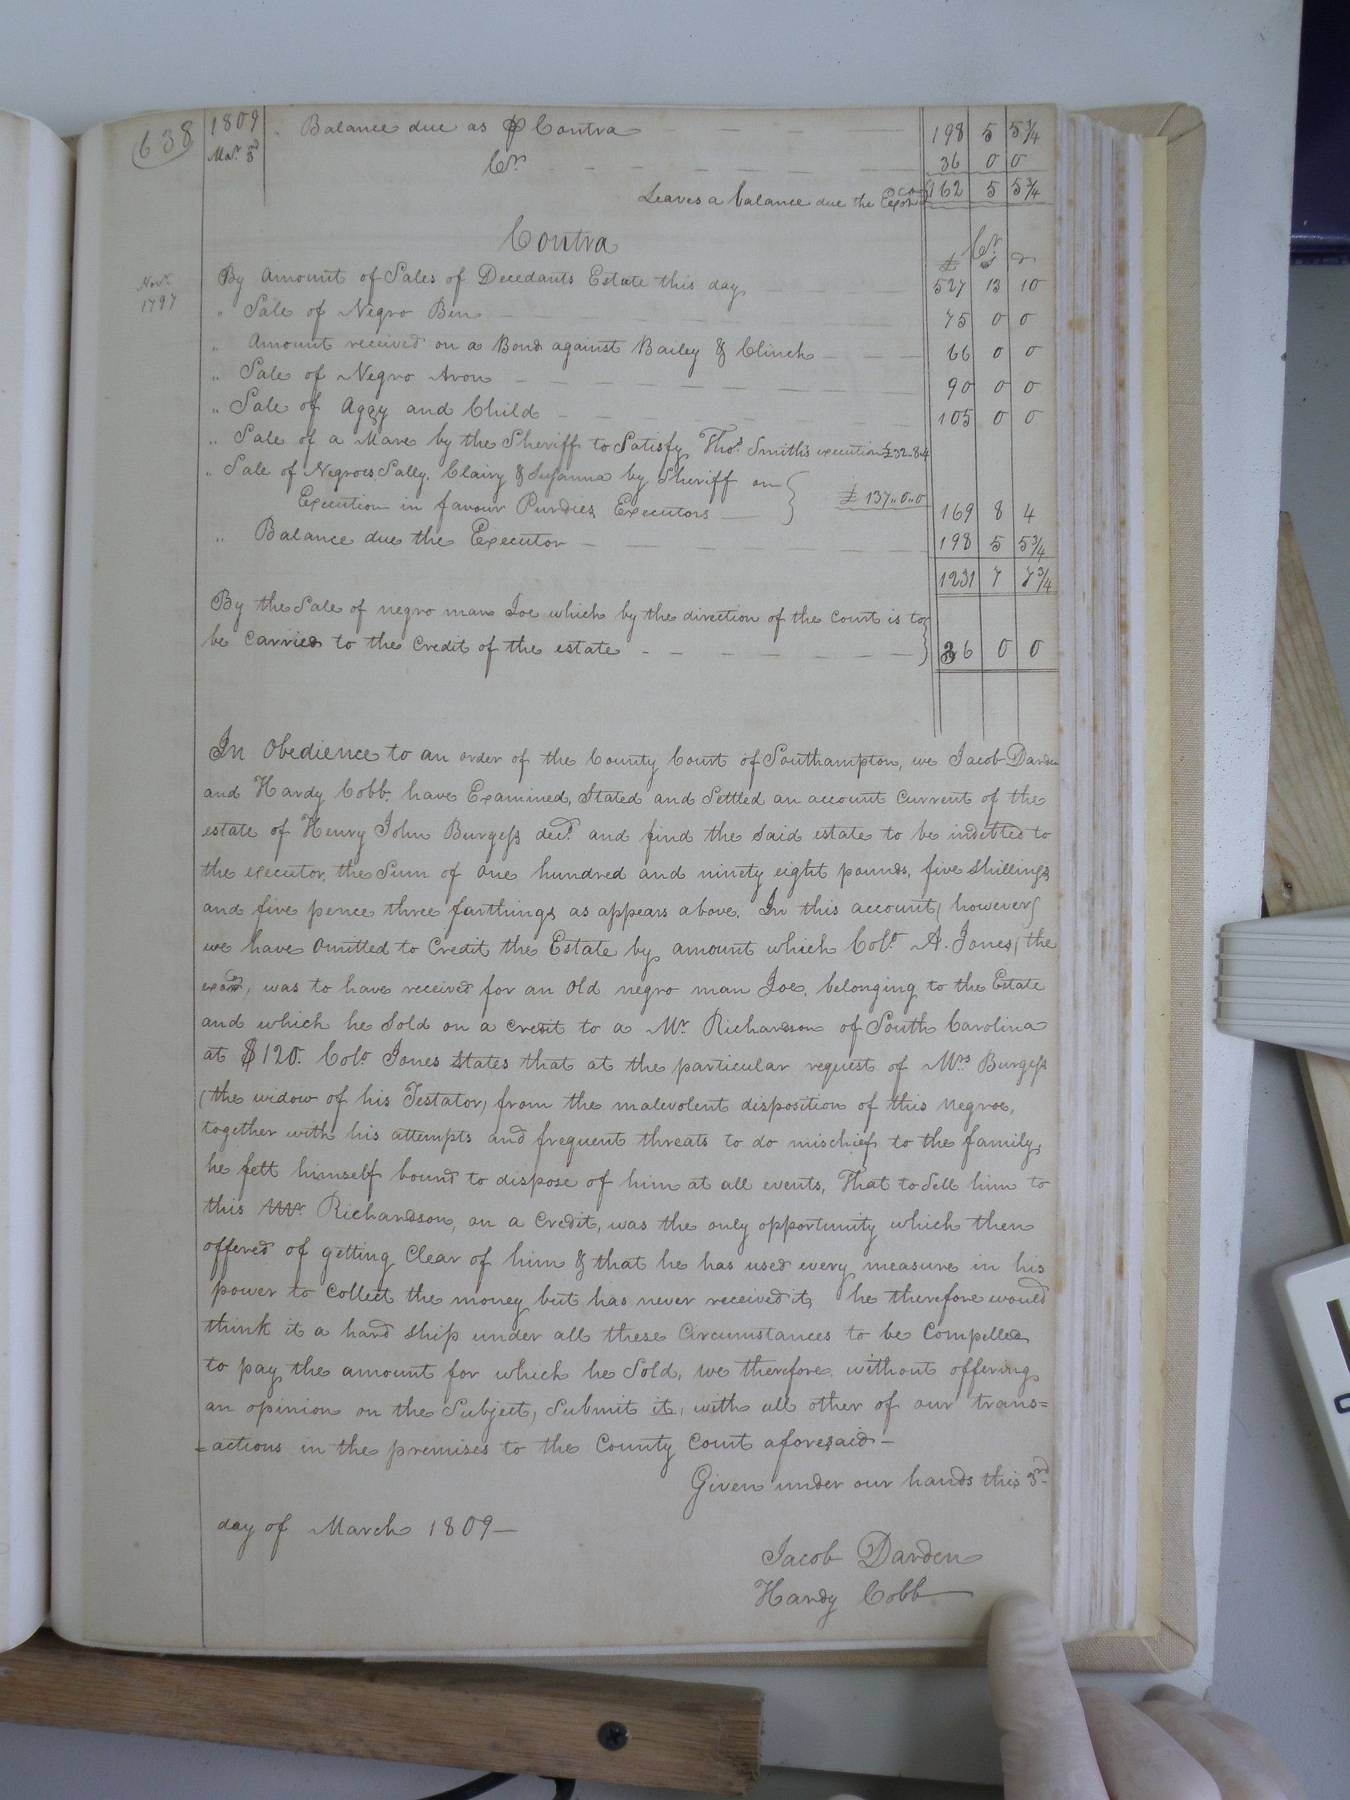 638
1809 Balance due as ⅌ Contra 198 5 5 3/4
Mar. 3d Cr. 36 0 0
Leaves a balance due the Exor 162 5 5 3/4
Contra Cr.
£ S D
Nov.
1797
By Amount of Sales of Decedants Estate this day 527 13 10
" Sale of Negro Ben 75 0 0
" Amount received on a Bond against Bailey & Clinch 66 0 0
" Sale of Negro Aron 90 0 0
" Sale of Aggy and Child 105 0 0
" Sale of a Mare by the Sheriff to Satisfy Thos. Smith's execution £32.8.4
" Sale of Negroes Sally, Clairy & Susanna by Sheriff on
Execution in favour Purdies Executors £137..0..0 169 8 4
" Balance due the Executor 198 5 5 3/4
1231 7 7 3/4
By the Sale of negro man Joe which by the direction of the Court is to
be carried to the Credit of the estate 36 0 0
In Obedience to an order of the County Court of Southampton, we Jacob Darden
and Hardy Cobb, have Examined, Stated and Settled an account Current of the
estate of Henry John Burgess decd. and find the said estate to be indebted to
the executor, the Sum of One hundred and ninety eight pounds, five shillings
and five pence three farthings as appears above. In this account (however)
we have Omitted to Credit the Estate by amount which Colo. A. Jones (the
exor), was to have received for an Old negro man Joe, belonging to the Estate
and which he Sold on a credit to a Mr. Richardson of South Carolina
at $120. Colo. Jones states that at the particular request of Mrs Burgess
(the widow of his Testator) from the malevolent disposition of this negroe,
together with his attempts and frequent threats to do mischief to the family,
he felt himself bound to dispose of him at all events, That to Sell him to
this Mr. Richardson, on a Credit, was the only opportunity which then
offered of getting Clear of him & that he has used every measure in his
power to Collect the money but has never received it, he therefore would
think it a hard ship under all these Circumstances to be Compelled
to pay the amount for which he Sold, we therefore without offering
an opinion on the Subject, Submit it, with all other of our trans=
=actions in the premises to the County Court aforesaid—
Given under our hands this 3rd
day of March 1809—
Jacob Darden
Hardy Cobb